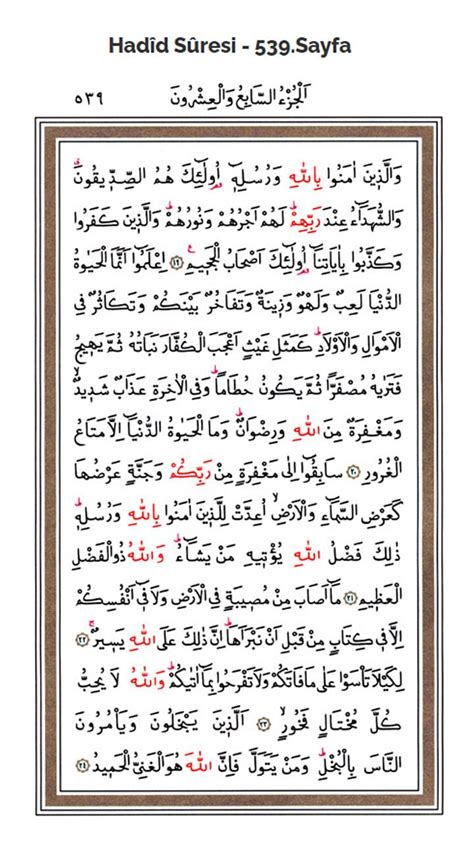 Hadîd Sûresi - 539.Sayfa
اَلْجُزْءُ السَّابِعُ وَالْعِشْرُونَ ٥٣٩
وَالَّذِينَ اٰمَنُوا بِاللّٰهِ وَرُسُلِهٖٓ اُولٰٓئِكَ هُمُ الصِّدّٖيقُونَۗ
وَالشُّهَدَٓاءُ عِنْدَ رَبِّهِمْۜ لَهُمْ اَجْرُهُمْ وَنُورُهُمْۜ وَالَّذٖينَ كَفَرُوا
وَكَذَّبُوا بِاٰيَاتِنَٓا اُولٰٓئِكَ اَصْحَابُ الْجَحٖيمِۚ ﴿١٩﴾ اِعْلَمُٓوا اَنَّمَا الْحَيٰوةُ
الدُّنْيَا لَعِبٌ وَلَهْوٌ وَزٖينَةٌ وَتَفَاخُرٌ بَيْنَكُمْ وَتَكَاثُرٌ فِي
الْاَمْوَالِ وَالْاَوْلَادِۜ كَمَثَلِ غَيْثٍ اَعْجَبَ الْكُفَّارَ نَبَاتُهُ ثُمَّ يَهٖيجُ
فَتَرٰيهُ مُصْفَرًّا ثُمَّ يَكُونُ حُطَامًاۜ وَفِي الْاٰخِرَةِ عَذَابٌ شَدٖيدٌۙ
وَمَغْفِرَةٌ مِنَ اللّٰهِ وَرِضْوَانٌۜ وَمَا الْحَيٰوةُ الدُّنْيَٓا اِلَّا مَتَاعُ
الْغُرُورِ ﴿٢٠﴾ سَابِقُٓوا اِلٰى مَغْفِرَةٍ مِنْ رَبِّكُمْ وَجَنَّةٍ عَرْضُهَا
كَعَرْضِ السَّمَٓاءِ وَالْاَرْضِۙ اُعِدَّتْ لِلَّذٖينَ اٰمَنُوا بِاللّٰهِ وَرُسُلِهٖۜ
ذٰلِكَ فَضْلُ اللّٰهِ يُؤْتٖيهِ مَنْ يَشَٓاءُۜ وَاللّٰهُ ذُوالْفَضْلِ
الْعَظٖيمِ ﴿٢١﴾ مَٓا اَصَابَ مِنْ مُصٖيبَةٍ فِي الْاَرْضِ وَلَا فٖٓي اَنْفُسِكُمْ
اِلَّا فٖي كِتَابٍ مِنْ قَبْلِ اَنْ نَبْرَاَهَاۜ اِنَّ ذٰلِكَ عَلَى اللّٰهِ يَسٖيرٌۚ ﴿٢٢﴾
لِكَيْلَا تَاْسَوْا عَلٰى مَا فَاتَكُمْ وَلَا تَفْرَحُوا بِمَٓا اٰتٰيكُمْۜ وَاللّٰهُ لَا يُحِبُّ
كُلَّ مُخْتَالٍ فَخُورٍۙ ﴿٢٣﴾ اَلَّذٖينَ يَبْخَلُونَ وَيَاْمُرُونَ
النَّاسَ بِالْبُخْلِۜ وَمَنْ يَتَوَلَّ فَاِنَّ اللّٰهَ هُوَ الْغَنِيُّ الْحَمٖيدُ ﴿٢٤﴾